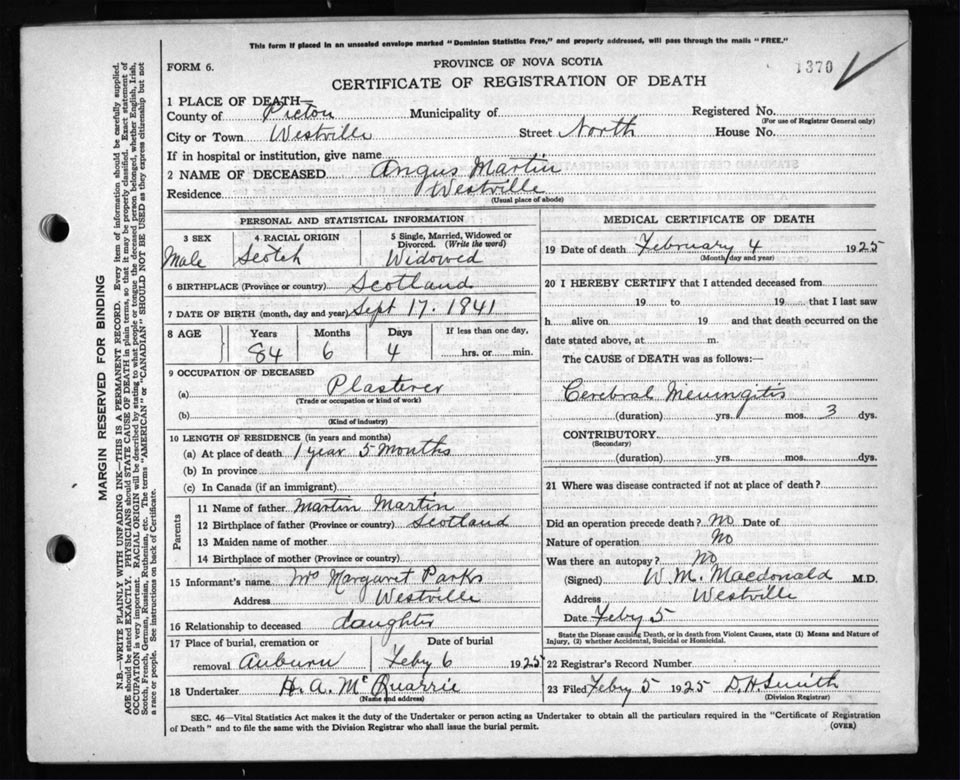 This form if placed in an unsealed envelope marked "Dominion Statistics Free," and properly addressed, will pass through the mails "FREE."
FORM 6.
PROVINCE OF NOVA SCOTIA
1370
CERTIFICATE OF REGISTRATION OF DEATH
1 PLACE OF DEATH—
County of Pictou Municipality of Registered No.
(For use of Registrar General only)
City or Town Westville Street North House No.
If in hospital or institution, give name
2 NAME OF DECEASED Angus Martin
Residence Westville
(Usual place of abode)
PERSONAL AND STATISTICAL INFORMATION
3 SEX 4 RACIAL ORIGIN 5 Single, Married, Widowed or Divorced. (Write the word)
Male Scotch Widowed
6 BIRTHPLACE (Province or country) Scotland
7 DATE OF BIRTH (month, day and year) Sept 17. 1841
8 AGE Years Months Days If less than one day,
84 6 4 hrs. or min.
9 OCCUPATION OF DECEASED
(a) Plasterer
(Trade or occupation or kind of work)
(b)
(Kind of industry)
10 LENGTH OF RESIDENCE (in years and months)
(a) At place of death 1 year 5 months
(b) In province
(c) In Canada (if an immigrant)
Parents
11 Name of father Martin Martin
12 Birthplace of father (Province or country) Scotland
13 Maiden name of mother
14 Birthplace of mother (Province or country)
15 Informant's name Mrs Margaret Parks
Address Westville
16 Relationship to deceased daughter
17 Place of burial, cremation or Date of burial
removal Auburn Feby 6 1925
18 Undertaker H. A. McQuarrie
(Name and address)
MEDICAL CERTIFICATE OF DEATH
19 Date of death February 4 1925
(Month, day and year)
20 I HEREBY CERTIFY that I attended deceased from
19 to 19 that I last saw
h alive on 19 and that death occurred on the
date stated above, at m.
The CAUSE of DEATH was as follows:—
Cerebral Meningitis
(duration) yrs. mos. 3 dys.
CONTRIBUTORY
(Secondary)
(duration) yrs. mos. dys.
21 Where was disease contracted if not at place of death?
Did an operation precede death? No Date of
Nature of operation No
Was there an autopsy? No
(Signed) W. M. Macdonald M.D.
Address Westville
Date Feby 5
State the Disease causing Death, or in death from Violent Causes, state (1) Means and Nature of
Injury, (2) whether Accidental, Suicidal or Homicidal.
22 Registrar's Record Number
23 Filed Feby 5 1925 D. H. Smith
(Division Registrar)
SEC. 46—Vital Statistics Act makes it the duty of the Undertaker or person acting as Undertaker to obtain all the particulars required in the "Certificate of Registration
of Death" and to file the same with the Division Registrar who shall issue the burial permit. (OVER)
MARGIN RESERVED FOR BINDING
N.B.—WRITE PLAINLY WITH UNFADING INK—THIS IS A PERMANENT RECORD. Every item of information should be carefully supplied.
AGE should be stated EXACTLY. PHYSICIANS should STATE CAUSE OF DEATH in plain terms, so that it may be properly classified. Exact statement of
OCCUPATION is very important. RACIAL ORIGIN will be described by stating to what people or tongue the deceased person belonged, whether English, Irish,
Scotch, French, German, Russian, Ruthenian, etc. The terms "AMERICAN" or "CANADIAN" SHOULD NOT BE USED as they express citizenship but not
a race or people. See instructions on back of Certificate.